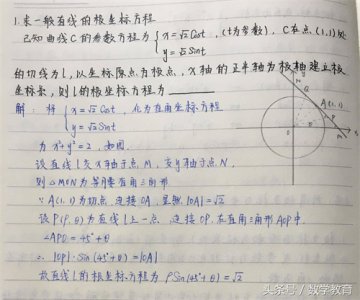 1.求一般直线的极坐标方程
已知曲线C的参数方程为 { x=√2 Cost , (t为参数), C在点(1,1)处
y=√2 Sint
的切线为l,以坐标原点为极点,x轴的正半轴为极轴建立极
坐标系,则l的极坐标方程为
解: 将 { x=√2 Cost , 化为直角坐标方程
y=√2 Sint
为 x²+y²=2,如图.
设直线l交x轴于点M,交y轴于点N,
则△MON为等腰直角三角形
∵A(1,1)为切点,连接OA,显然|OA|=√2
设P(ρ,θ)为直线l上一点,连接OP,在直角三角形AOP中.
∠APO=45°+θ
∴|OP|·Sin(45°+θ)=|OA|
故直线l的极坐标方程为 ρSin(45°+θ)=√2
N
A(1,1)
P
θ
O
M
x
头条号/数学教育